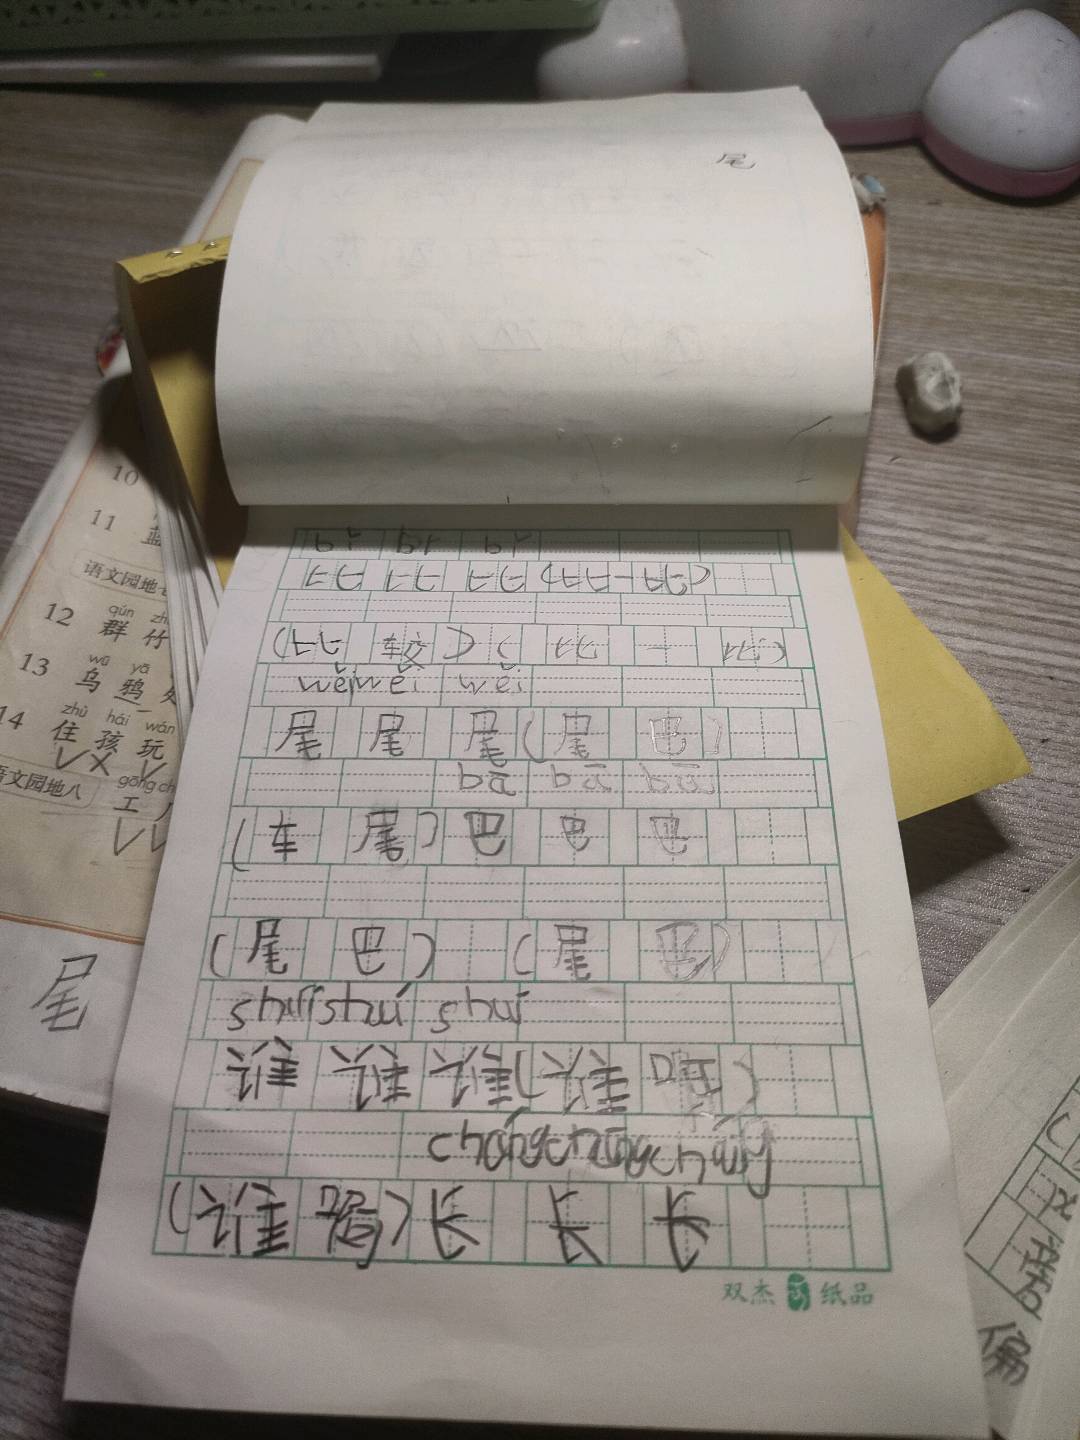 尾
10
11 蓝
语文园地七
qún zh
12 群竹
wū yā
13 乌鸦处
zhù hái wán
14 住孩玩
语文园地八
gōng ch
工
尾
bǐ bǐ bǐ
比 比 比 (比一比)
(比较) (比一比)
wěi wěi wěi
尾 尾 尾 (尾巴)
bā bā bā
(车尾) 巴 巴 巴
(尾巴) (尾巴)
shuí shuí shuí
谁 谁 谁 (谁
cháng cháng cháng
(谁 ) 长 长 长
双杰 纸品
偏